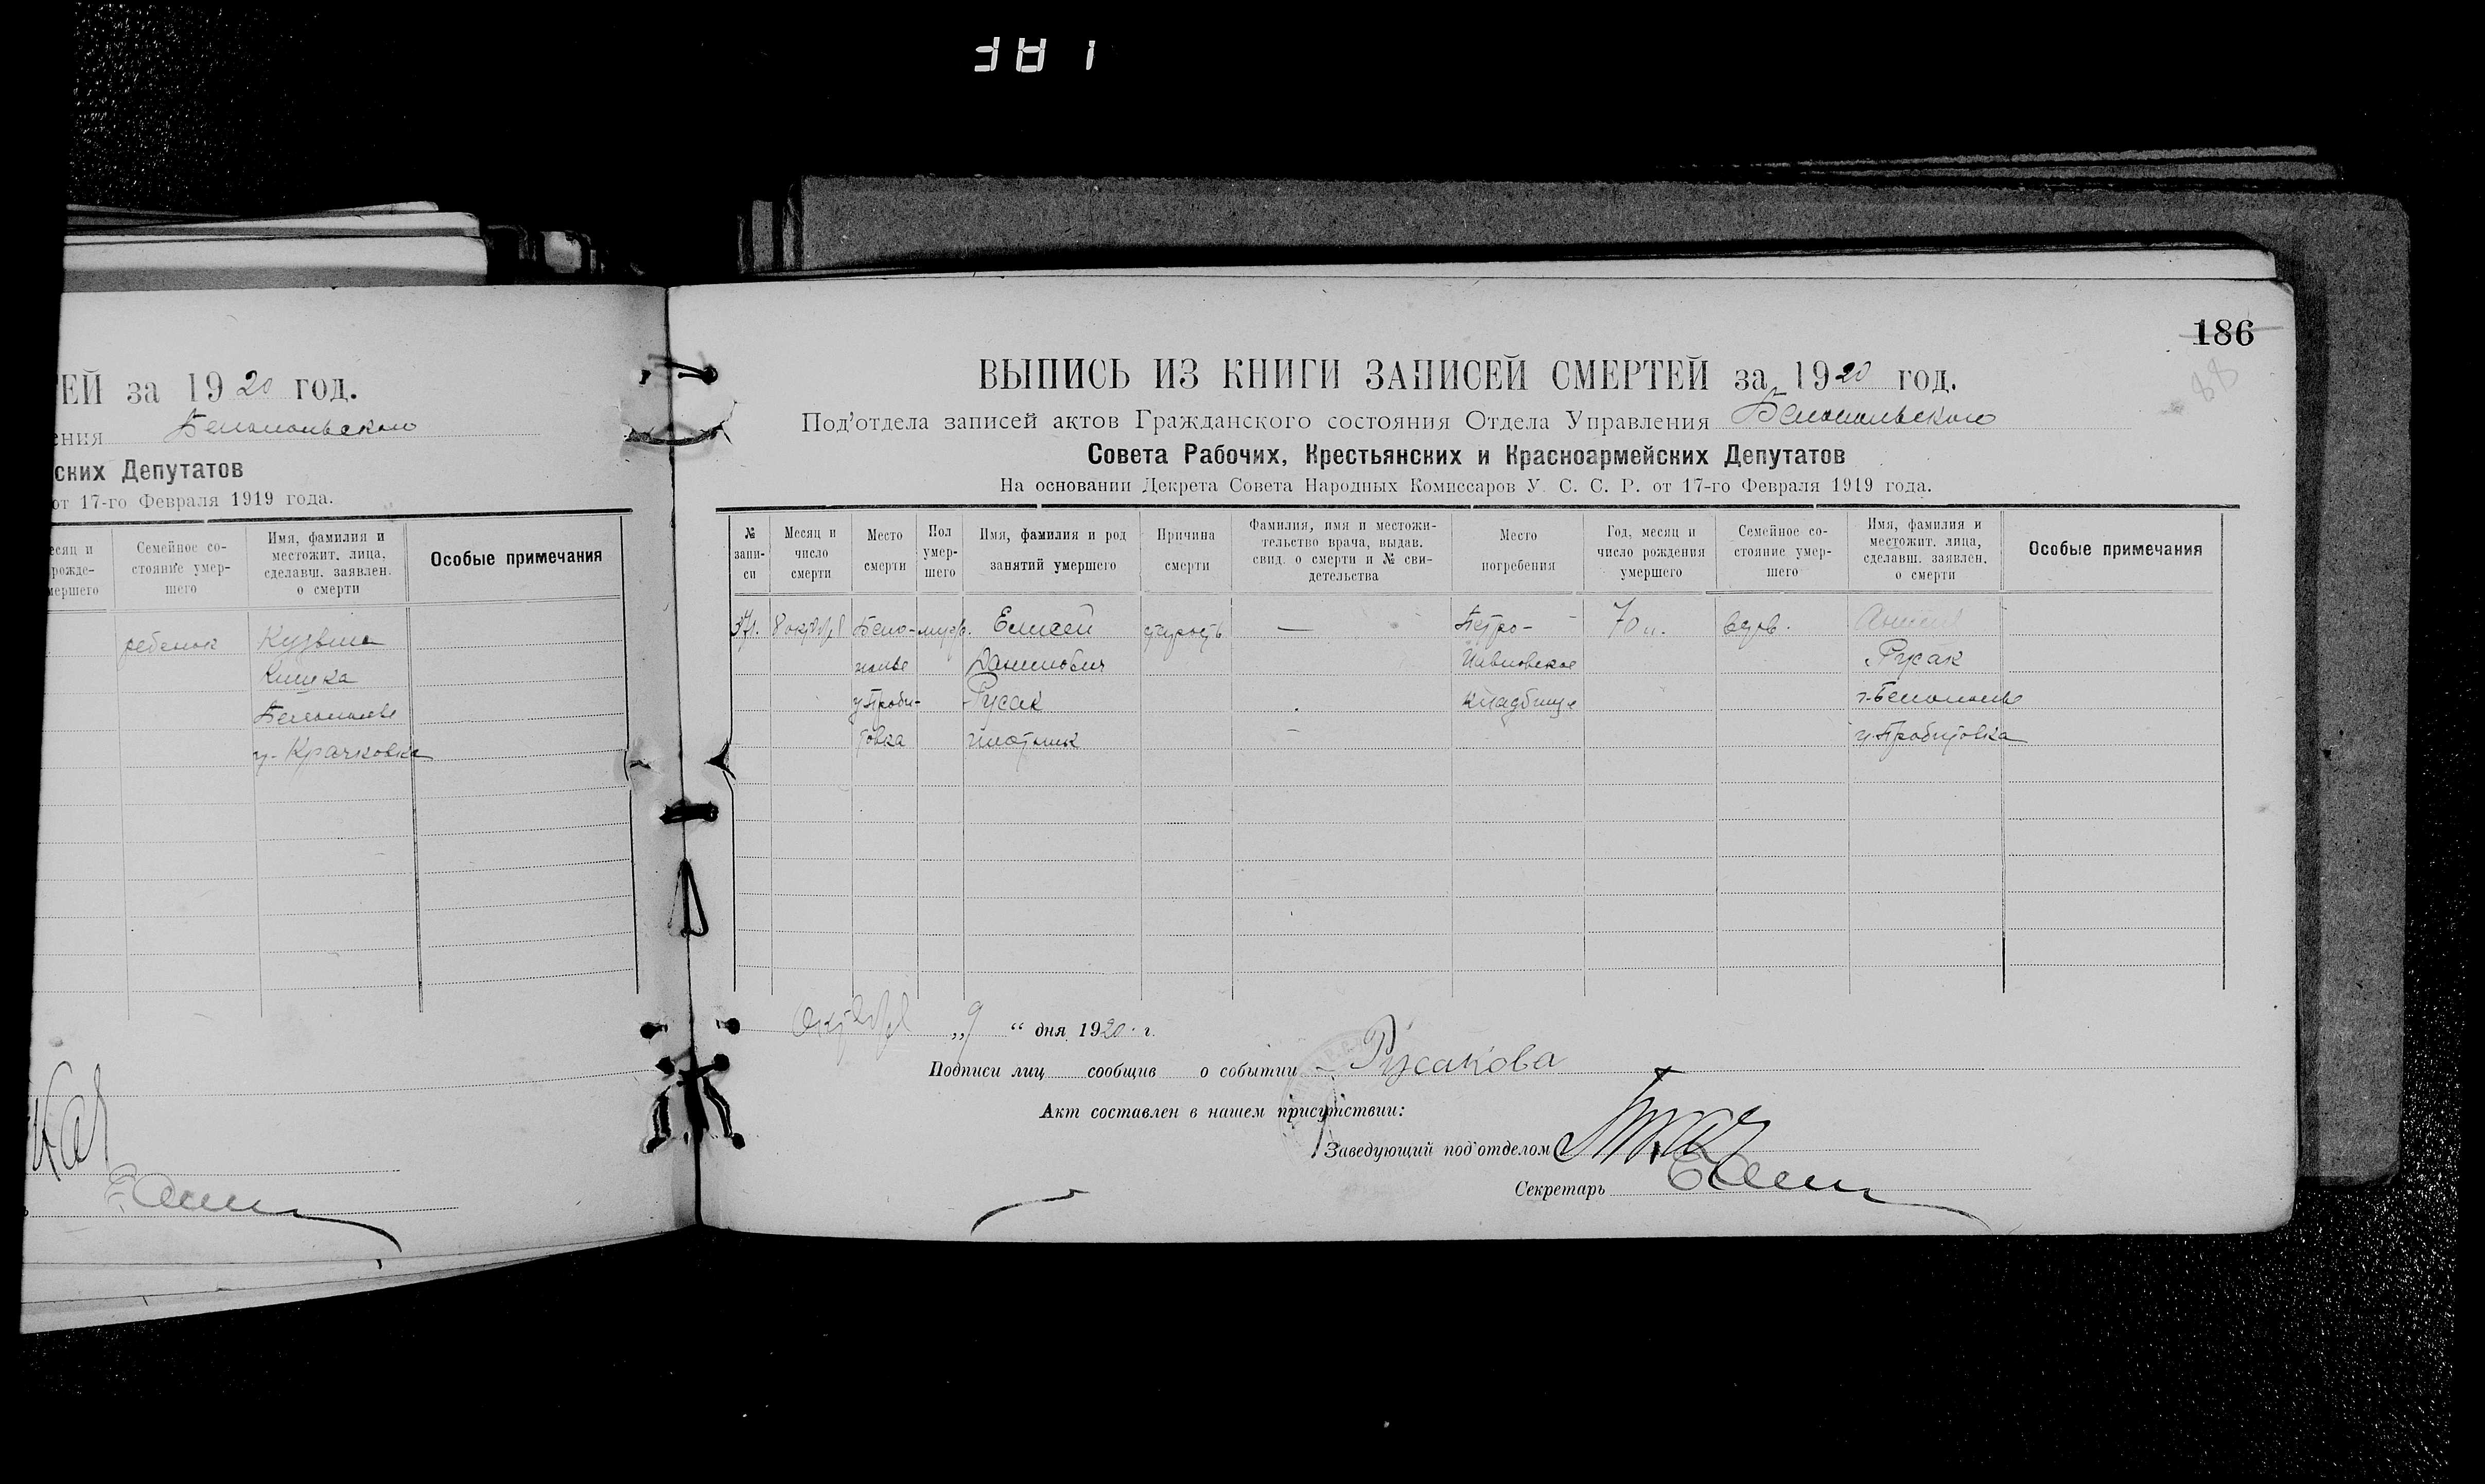 186
88
ЕЙ за 1920 год.
ения Белопольского
ских Депутатов
от 17-го Февраля 1919 года.
есяц и рожде- мершего
Семейное со- стояние умер- шего
Имя, фамилия и местожит. лица, сделавш. заявлен. о смерти
Особые примечания
ребенок Кузьма
Кишка
Белополье
у. Крачковка
ВЫПИСЬ ИЗ КНИГИ ЗАПИСЕЙ СМЕРТЕЙ за 1920 год.
Под'отдела записей актов Гражданского состояния Отдела Управления Белопольского
Совета Рабочих, Крестьянских и Красноармейских Депутатов
На основании Декрета Совета Народных Комиссаров У. С. С. Р. от 17-го Февраля 1919 года.
№ запи- си
Месяц и число смерти
Место смерти
Пол умер- шего
Имя, фамилия и род занятий умершего
Причина смерти
Фамилия, имя и местожи- тельство врача, выдав. свид. о смерти и № сви- детельства
Место погребения
Год, месяц и число рождения умершего
Семейное со- стояние умер- шего
Имя, фамилия и местожит. лица, сделавш. заявлен. о смерти
Особые примечания
8 октября Бело- муж. Елисей старость — Петро- 70 л. вдов.
полье Данилович Павловское Русак
у. Проби- Русак кладбище г. Белополье
товка плотник у. Пробитовка
Октября „9“ дня 1920 г.
Подписи лиц сообщив о событии Русакова
Акт составлен в нашем присутствии:
Заведующий под'отделом
Секретарь